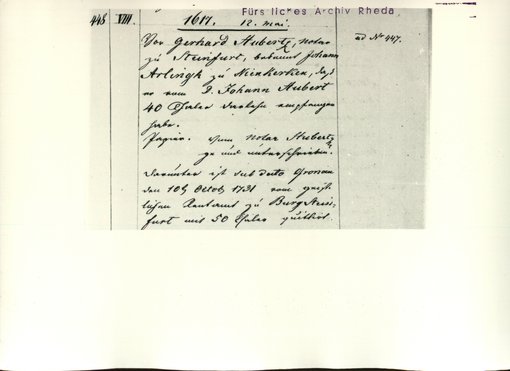 Fürstliches Archiv Rheda
448 VIII. 1617. 12. Mai.
Vor Gerhard Hubertz, Notar ad Nr 447.
zu Steinfurt, bekennt Johann
Arlingk zu Neinkerken, daß
er vom D. Johann Hubert
40 Thaler Darlehn empfangen
habe.
Papier. Vom Notar Hubertz
ge und unterschrieben.
Darunter ist sub dato Gronau
den 10 Octob 1731 vom
lichen Rentamt zu Burg
furt mit 50 Thaler quittirt.